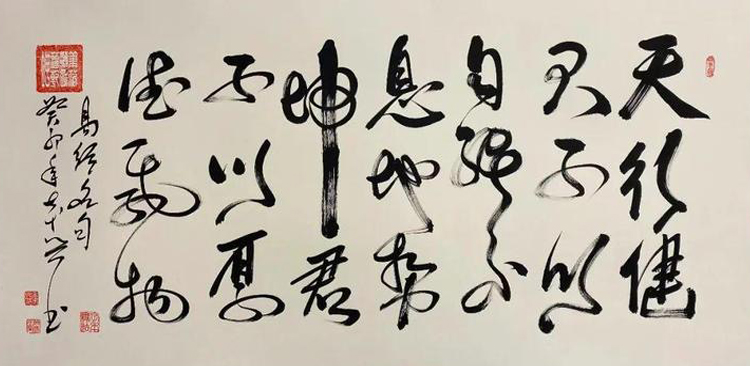 天行健
君子以
自强不
息地势
坤君
子以厚
德载物
易经名句
癸卯年书